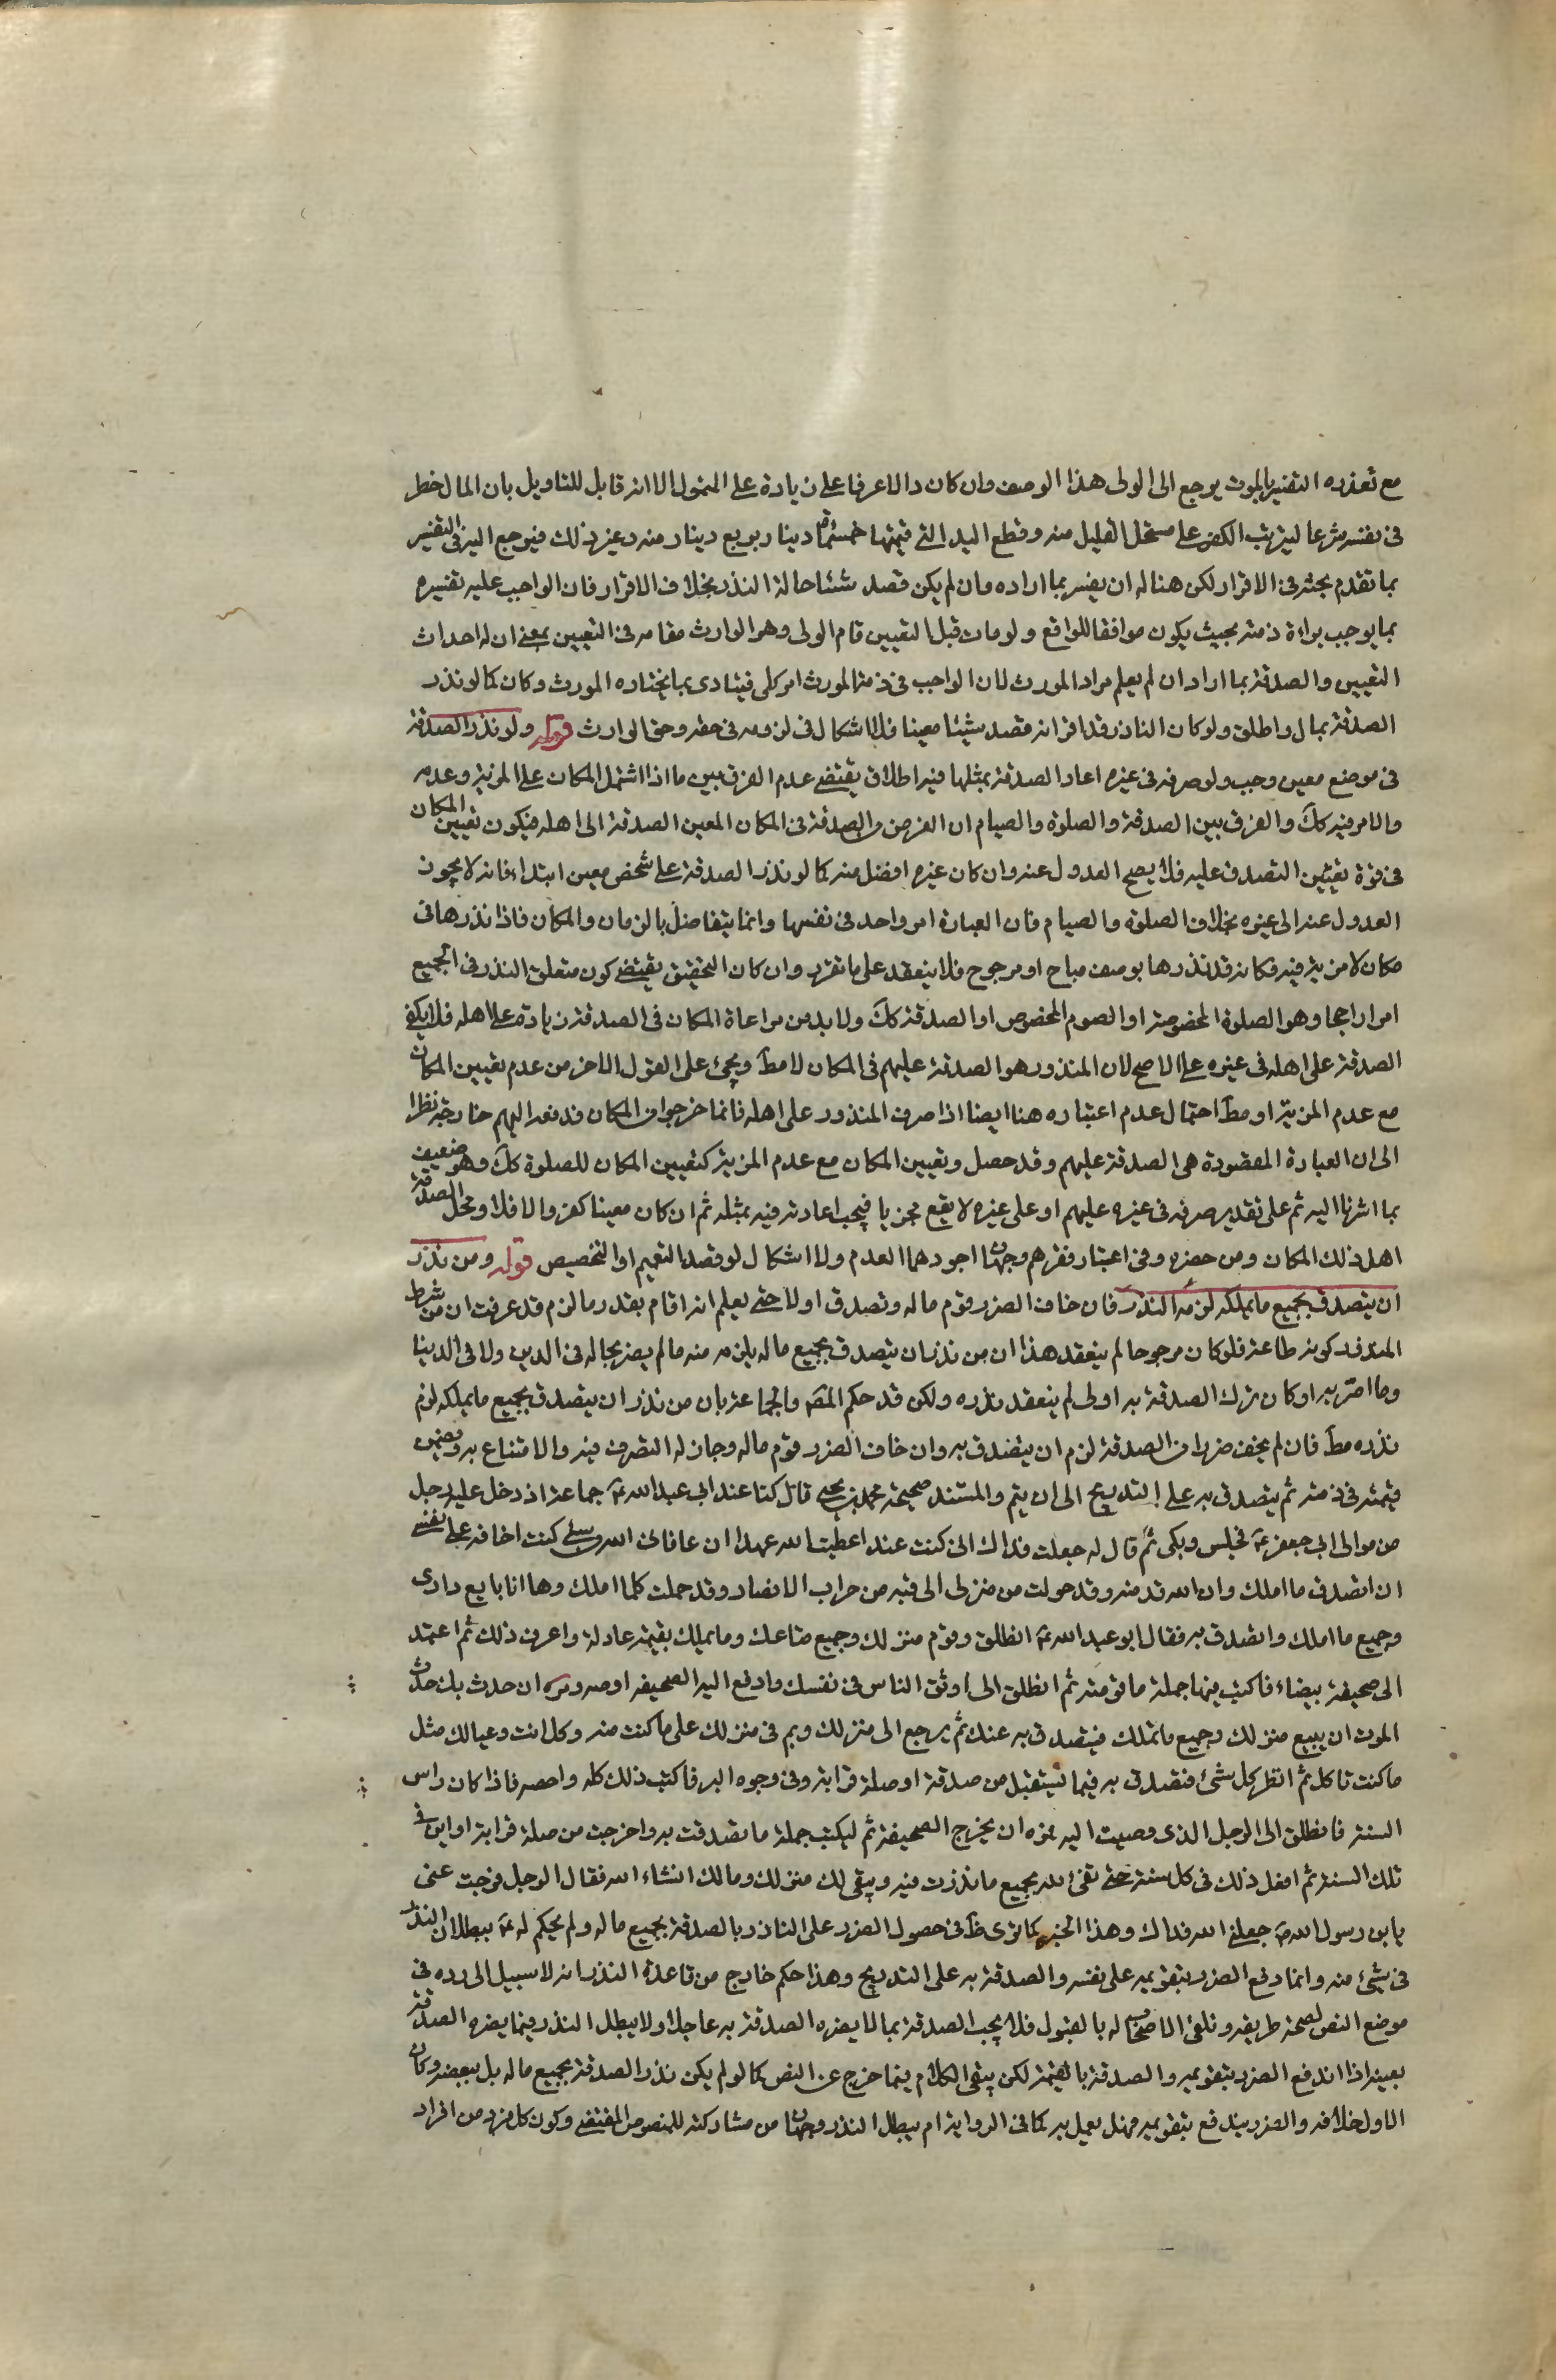 مع تعذره التفسير بالموت يرجع الى الولى هذا الوصف وان كان دالا عرفا على زيادة على المتمول الا انه قابل للتاويل بان المال خطر
فى نفسه شرعا ليترتب الكفر على مستحل القليل منه وقطع اليد التى قيمتها خمسمائة دينار بربع دينار منه وغير ذلك فيرجع اليه فى التفسير
بما تقدم بحثه فى الاقرار لكن هنا له ان يفسر بما اراده وان لم يكن قصد شيئا حالة النذر بخلاف الاقرار فان الواجب عليه تفسيره
بما يوجب براءة ذمته بحيث يكون موافقا للواقع ولو مات قبل التعيين قام الولى وهو الوارث مقامه فى التعيين بمعنى ان له احداث
التعيين والصدقة بما اراد ان لم يعلم مراد المورث لان الواجب فى ذمة المورث امر كلى فيتادى بما يختاره المورث وكان كما لو نذر
الصدقة بمال واطلق ولو كان الناذر قد اقر انه قصد شيئا معينا فلا اشكال فى لزومه فى حقه وحق الوارث قوله ولو نذر الصدقة
فى موضع معين وجب ولو صرفه فى غيره اعاد الصدقة بمثلها فيه اطلاق يقتضى عدم الفرق بين ما اذا اشتمل المكان على المزية وعدمه
والامر فيه كك والفرق بين الصدقة والصلوة والصيام ان الغرض والصدقة فى المكان المعين الصدقة الى اهله فيكون تعيين المكان
فى قوة تعيين التصدق عليه فلا يصح العدول عنه وان كان غيره افضل منه كما لو نذر الصدقة على شخص معين ابتداء فانه لا يجوز
العدول عنه الى غيره بخلاف الصلوة والصيام فان العبادة امر واحد فى نفسها وانما يتفاضل بالزمان والمكان فاذا نذرها فى
مكان لا مزية فيه فكانه قد نذرها بوصف مباح او مرجوح فلا ينعقد على ما تقرر وان كان التحقيق يقتضى كون متعلق النذر فى الجميع
امرا راجحا وهو الصلوة المخصوصة او الصوم المخصوص او الصدقة كك ولا بد من مراعاة المكان فى الصدقة زيادة على اهله فلا يكفى
الصدقة على اهله فى غيره على الاصح لان المنذور هو الصدقة عليهم فى المكان لا مط ويجئ على القول الاخر من عدم تعيين المكان
مع عدم المزية او مط احتمال عدم اعتباره هنا ايضا اذا صرف المنذور على اهله فانما خرجوا من المكان فدفعه اليهم خارجة نظرا
الى ان العبادة المقصودة هى الصدقة عليهم وقد حصل وتعيين المكان مع عدم المزية كتعيين المكان للصلوة كك وهو ضعيف
بما اشرنا اليه ثم على تقدير صرفه فى غيره عليهم او على غيره لا يقع مجزيا فيجب اعادته فيه بمثله ثم ان كان معينا كفر والا فلا ومحل الصدقة
اهل ذلك المكان ومن حضره وفى اعتبار فقرهم وجهان اجودهما العدم ولا اشكال لو قصد التعميم او التخصيص قوله ومن نذر
ان يتصدق بجميع ما يملكه لزمه النذر فان خاف الضرر قوم ماله وتصدق اولا حتى يعلم انه اقام بقدر ما لزم قد عرفت ان من شرط
المنذور كونه طاعة فلو كان مرجوحا لم ينعقد هذا ان من نذر ان يتصدق بجميع ماله يلزمه منه ما لم يضر بحاله فى الدين ولا فى الدنيا
وما اضر به او كان ترك الصدقة به اولى لم ينعقد نذره ولكن قد حكم المصه والجماعة بان من نذر ان يتصدق بجميع ما يملكه لزم
نذره مط فان لم يخف ضررا من الصدقة لزم ان يتصدق به وان خاف الضرر قوم ماله وجاز له التصرف فيه والانتفاع به وضمن
قيمته فى ذمته ثم يتصدق به على التدريج الى ان يتم والمستند صحيحة محمد بن يحيى قال كنا عند ابى عبد الله ع جماعة اذ دخل عليه رجل
من موالى ابى جعفر ع فجلس وبكى ثم قال له جعلت فداك انى كنت عند اعطيت الله عهدا ان عافانى الله من شئ كنت اخافه على نفسى
ان اتصدق ما املك وان الله قد منه وقد حولت من منزلى الى قبه من خراب الانصار وقد حملت كلما املك وها انا بايع دارى
وجميع ما املك واتصدق به فقال ابو عبد الله ع انطلق وقوم منزلك وجميع متاعك وما يملك بقيمة عادلة واعرف ذلك ثم اعتمد
الى صحيفة بيضاء فاكتب فيها جملة ما قومته ثم انطلق الى اوثق الناس فى نفسك وادفع اليه الصحيفه اوصه ومره ان حدث بك حدث
الموت ان يبيع منزلك وجميع ما تملك فيتصدق به عنك ثم يرجع الى منزلك وبم فى منزلك على ما كنت منه وكل انت وعيالك مثل
ما كنت تاكل ثم انظر كل شئ فتصدق به فيما تستقبل من صدقة او صلة قرابة وفى وجوه البر فاكتب ذلك كله واحصه فاذا كان راس
السنة فانطلق الى الرجل الذى وصيت اليه فمره ان يخرج الصحيفة ثم ليكتب جملة ما تصدقت به واخرجت من صلة قرابة او اين فى
تلك السنة ثم افعل ذلك فى كل سنة حتى تفى لله بجميع ما نذرت فيه ويبقى لك منزلك ومالك انشاء الله فقال الرجل فرجت عنى
يا بن رسول الله ص جعلنى الله فداك وهذا الخبر كما ترى ظ فى حصول الضرر على الناذر بالصدقة بجميع ماله ولم يحكم له ع ببطلان النذر
فى شئ منه وانما دفع الضرر بتقويمه على نفسه والصدقة به على التدريج وهذا حكم خارج من قاعدة النذر انه لا سبيل الى رده فى
موضع النص لصحة طريقه وتلقى الاصحاب له بالقبول فلا يجب الصدقة بما لا يضره الصدقة به عاجلا ولا يبطل النذر فيما يضره الصدقة
بعينه اذا اندفع الضرر بتقويمه والصدقة بالقيمة لكن يبقى الكلام فيما خرج عن النص كما لو لم يكن نذر الصدقة بجميع ماله بل ببعضه وكان
الاولى خلافه والضرر يندفع بتقويمه فهل يعمل به كما فى الرواية ام يبطل النذر وجهان من مشاركته للمنصوص المقتضى وكون كل فرد من افراد